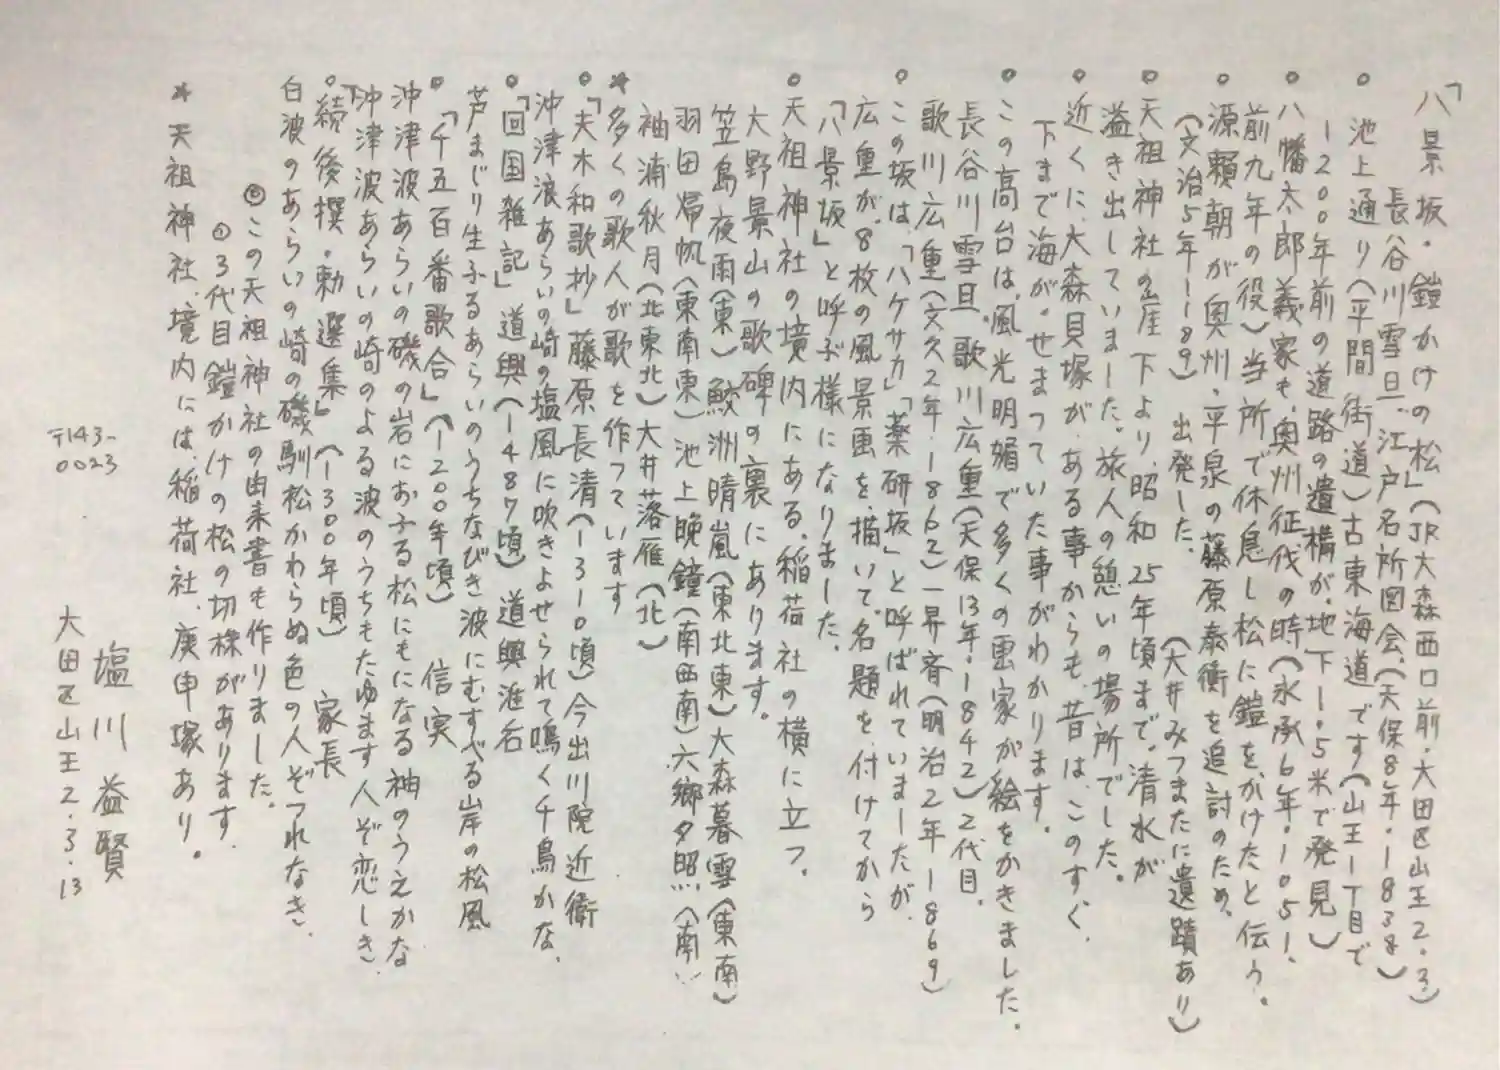 「八景坂・鎧かけの松」(JR大森西口前・大田区山王2.3)
長谷川雪旦、江戸名所図会、(天保8年・1838)
○池上通り(平間街道)古東海道です(山王1丁目で
1200年前の道路の遺構が、地下1.5米で発見)
○八幡太郎義家も、奥州征伐の時(永承6年・1051、
前九年の役)当所で休息し松に鎧をかけたと伝う。
○源頼朝が奥州・平泉の藤原泰衡を追討のため、
(文治5年1189) 出発した。 (大井みつまたに遺蹟あり)
○天祖神社の崖下より、昭和25年頃まで。清水が
溢き出していました。旅人の憩いの場所でした。
○近くに、大森貝塚が、ある事からも、昔は、このすぐ、
下まで海が。せまっていた事がわかります。
○この高台は、風光明媚で多くの画家が絵をかきました。
長谷川雪旦。歌川広重(天保13年・1842)2代目、
歌川広重(文久2年・1862)一昇斉(明治2年1869)
○この坂は、「ハケサカ」「薬研坂」と呼ばれていましたが、
広重が、8枚の風景画を描いて、名題を付けてから
「八景坂」と呼ぶ様になりました。
○天祖神社の境内にある、稲荷社の横に立つ。
大野景山の歌碑の裏にあります。
笠島夜雨(東)鮫洲晴嵐(東北東)大森暮雪(東南)
羽田帰帆(東南東)池上晩鐘(南西南)六郷夕照(南)
袖浦秋月(北東北)大井落雁(北)
*多くの歌人が歌を作っています
○「夫木和歌抄」藤原長清(1310頃)今出川院近衛
沖津浪あらいの崎の塩風に吹きよせられて鳴く千鳥かな、
○「回国雑記」道興(1487頃)道興准后
芦まじり生ふるあらいのうちなびき波にむすべる岸の松風
○「千五百番歌合」(1200年頃) 信実
沖津波あらいの磯の岩におふる松にもになる神のうえかな
沖津波あらいの崎のよる波のうちもたゆます人ぞ恋しき、
○「続後撰・勅選集」(1300年頃) 家長
白波のあらいの崎の磯馴松かわらぬ色の人ぞつれなき、
◎この天祖神社の由来書も作りました。
①3代目鎧かけの松の切株があります。
*天祖神社、境内には、稲荷社、庚申塚あり。
〒143-
0023
塩川益賢
大田区山王2.3.13